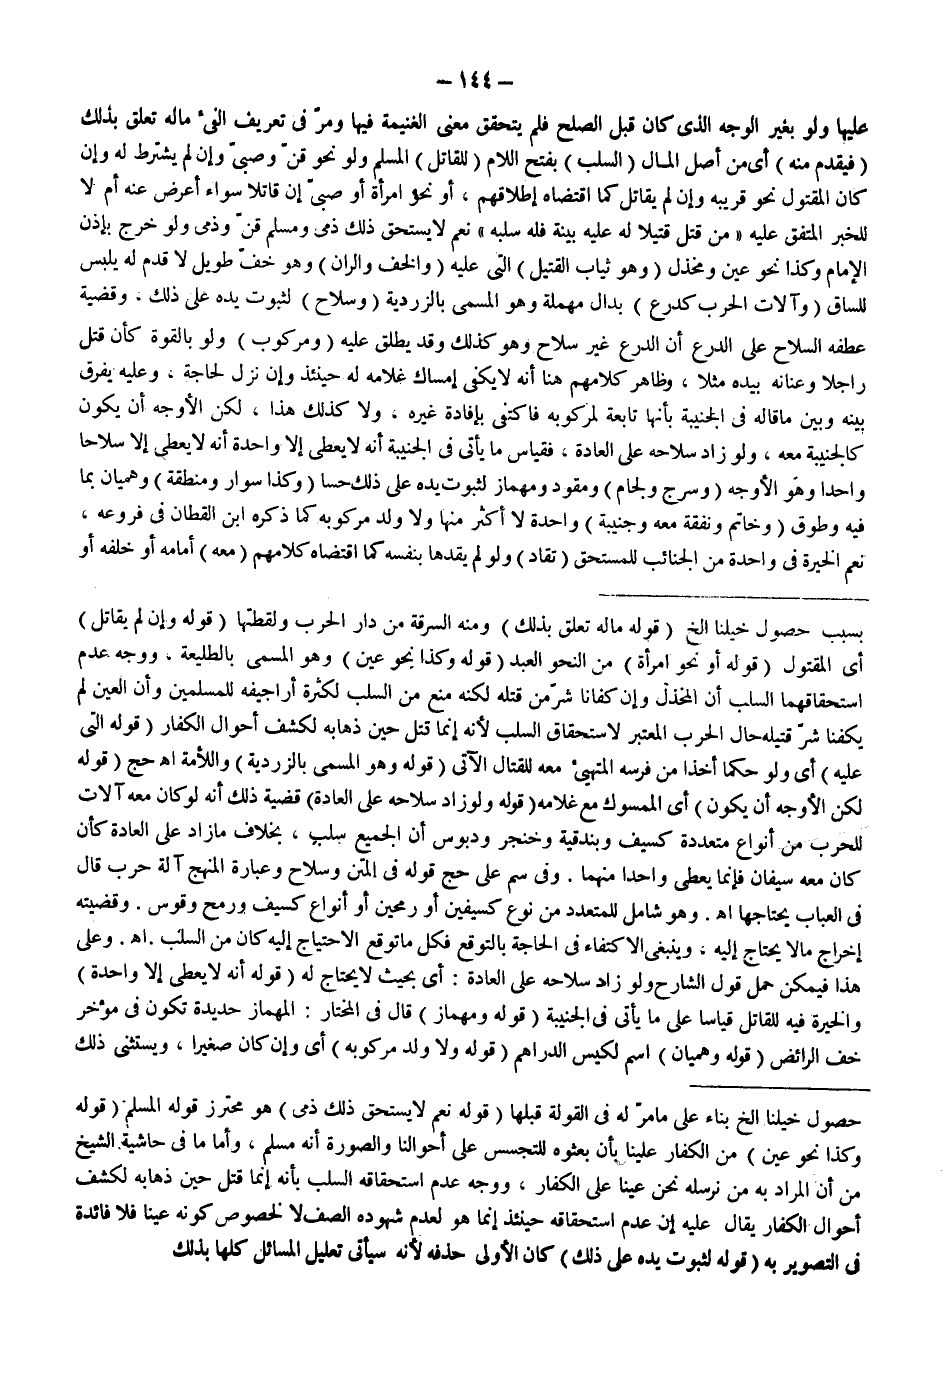 – ١٤٤ –
عليها ولو بغير الوجه الذى كان قبل الصلح فلم يتحقق معنى الغنيمة فيها ومرّ فى تعريف الفىء ماله تعلق بذلك
( فيقدم منه ) أى من أصل المال ( السلب ) بفتح اللام ( للقاتل ) المسلم ولو نحو قنّ وصبىّ وإن لم يشترط له وإن
كان المقتول نحو قريبه وإن لم يقاتل كما اقتضاه إطلاقهم ، أو نحو امرأة أو صبىّ إن قاتلا سواء أعرض عنه أم لا
للخبر المتفق عليه « من قتل قتيلا له عليه بينة فله سلبه » نعم لايستحق ذلك ذمى ومسلم قنّ وذمى ولو خرج بإذن
الإمام وكذا نحو عين ومخذل ( وهو ثياب القتيل ) التى عليه ( والخف والران ) وهو خفّ طويل لا قدم له يلبس
للساق ( وآلات الحرب كدرع ) بدال مهملة وهو المسمى بالزردية ( وسلاح ) لثبوت يده على ذلك ، وقضية
عطفه السلاح على الدرع أن الدرع غير سلاح وهو كذلك وقد يطلق عليه ( ومركوب ) ولو بالقوة كأن قتل
راجلا وعنانه بيده مثلا ، وظاهر كلامهم هنا أنه لايكفى إمساك غلامه له حينئذ وإن نزل لحاجة ، وعليه يفرق
بينه وبين ماقاله فى الجنيبة بأنها تابعة لمركوبه فاكتفى بإفادة غيره ، ولا كذلك هذا ، لكن الأوجه أن يكون
كالجنيبة معه ، ولو زاد سلاحه على العادة ، فقياس ما يأتى فى الجنيبة أنه لايعطى إلا واحدة أنه لايعطى إلا سلاحا
واحدا وهو الأوجه ( وسرج ولجام ) ومقود ومهماز لثبوت يده على ذلك حسا ( وكذا سوار ومنطقة ) وهميان بما
فيه وطوق ( وخاتم ونفقة معه وجنيبة ) واحدة لا أكثر منها ولا ولد مركوبه كما ذكره ابن القطان فى فروعه ،
نعم الخيرة فى واحدة من الجنائب للمستحق ( تقاد ) ولو لم يقدها بنفسه كما اقتضاه كلامهم ( معه ) أمامه أو خلفه أو
بسبب حصول خيلنا الخ ( قوله ماله تعلق بذلك ) ومنه السرقة من دار الحرب ولقطتها ( قوله وإن لم يقاتل )
أى المقتول ( قوله أو نحو امرأة ) من النحو العبد ( قوله وكذا نحو عين ) وهو المسمى بالطليعة ، ووجه عدم
استحقاقهما السلب أن المخذل وإن كفانا شرّ من قتله لكنه منع من السلب لكثرة أراجيفه للمسلمين وأن العين لم
يكفنا شرّ قتيله حال الحرب المعتبر لاستحقاق السلب لأنه إنما قتل حين ذهابه لكشف أحوال الكفار ( قوله التى
عليه ) أى ولو حكما أخذا من فرسه المتهيئ معه للقتال الآتى ( قوله وهو المسمى بالزردية ) واللأمة اه حج ( قوله
لكن الأوجه أن يكون ) أى الممسوك مع غلامه ( قوله ولو زاد سلاحه على العادة ) قضية ذلك أنه لو كان معه آلات
للحرب من أنواع متعددة كسيف وبندقية وخنجر ودبوس أن الجميع سلب ، بخلاف مازاد على العادة كأن
كان معه سيفان فإنما يعطى واحدا منهما . وفى سم على حج قوله فى المتن وسلاح وعبارة المنهج آلة حرب قال
فى العباب يحتاجها اه . وهو شامل للمتعدد من نوع كسيفين أو رمحين أو أنواع كسيف ورمح وقوس . وقضيته
إخراج مالا يحتاج إليه ، وينبغى الاكتفاء فى الحاجة بالتوقع فكل ماتوقع الاحتياج إليه كان من السلب . اه . وعلى
هذا فيمكن حمل قول الشارح ولو زاد سلاحه على العادة : أى بحيث لايحتاج له ( قوله أنه لايعطى إلا واحدة )
والخيرة فيه للقاتل قياسا على ما يأتى فى الجنيبة ( قوله ومهماز ) قال فى المختار : المهماز حديدة تكون فى مؤخر
خف الرائض ( قوله وهميان ) اسم لكيس الدراهم ( قوله ولا ولد مركوبه ) أى وإن كان صغيرا ، ويستثنى ذلك
حصول خيلنا الخ بناء على مامرّ له فى القولة قبلها ( قوله نعم لايستحق ذلك ذمى ) هو محترز قوله المسلم ( قوله
وكذا نحو عين ) من الكفار علينا بأن بعثوه للتجسس على أحوالنا والصورة أنه مسلم ، وأما ما فى حاشية الشيخ
من أن المراد به من نرسله نحن عينا على الكفار ، ووجه عدم استحقاقه السلب بأنه إنما قتل حين ذهابه لكشف
أحوال الكفار يقال عليه إن عدم استحقاقه حينئذ إنما هو لعدم شهوده الصف لا لخصوص كونه عينا فلا فائدة
فى التصوير به ( قوله لثبوت يده على ذلك ) كان الأولى حذفه لأنه سيأتى تعليل المسائل كلها بذلك